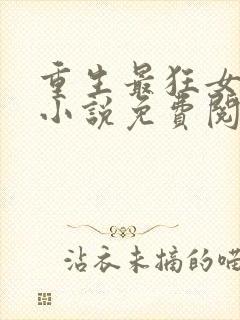 重生最狂女
小說免費閱
沾衣未摘的喵